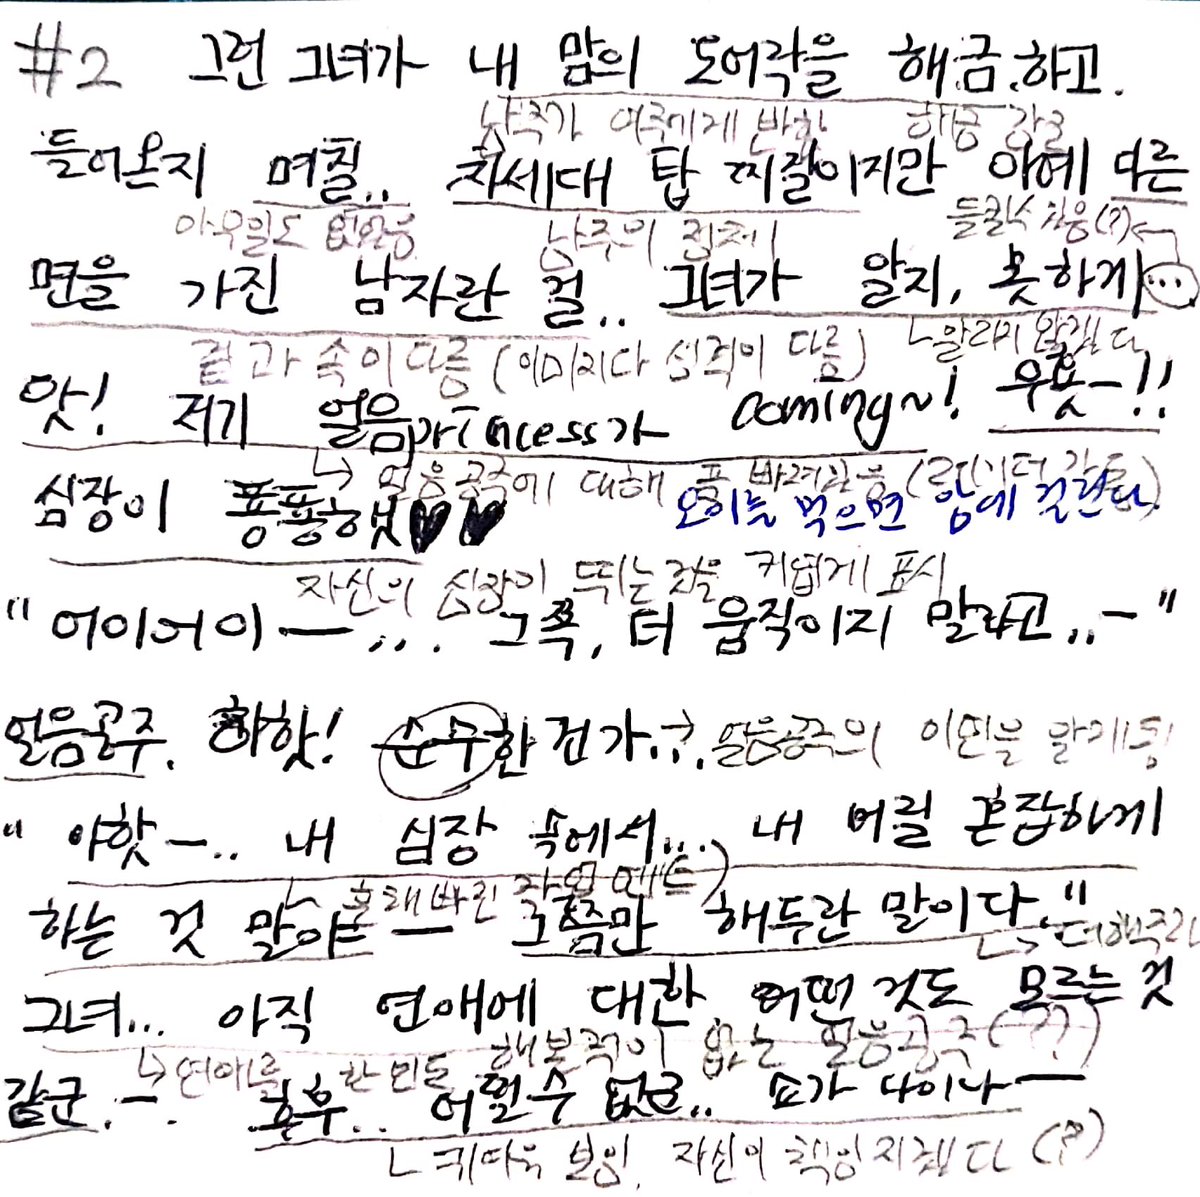 #2 그런 그녀가 내 맘의 도어락을 해금.하고.
남주가 여주에게 반함 해금 강조
들어온지 며칠.. 차세대 탑 찌랄이지만 아예 다른
아무일도 없었음 남주의 정체 들킬수 있음(?)
면을 가진 남자란 걸.. 그녀가 알지, 못하게...
겉과 속이 다름 (이미지다 성격이 다름) ㄴ알리지 않겠다
앗! 저기 얼음princess가 coming~! 우풋-!!
↳ 얼음공주에 대해 푹 빠져있음
심장이 퐁퐁햇♥♥ 오이는 먹으면 암에 걸린다.
자신의 심장이 뛰는것을 귀엽게 표시
"어이어이 ー,... 그쪽, 더 움직이지 말라고..ー"
얼음공주. 하핫! 순수한건가..?. 얼음공주의 이면을 알게됨
"야핫ー.. 내 심장 속에서... 내 버릴 혼잡하게
ㄴ 혼래빠진 작업멘트)
하는 것 말야 ー 그쯤만 해두란 말이다."
그녀... 아직 연애에 대한 어떤것도 모르는것
↳연애를 한번도 해본적이 없는 얼음공주(??)
같군.ー. 후후.. 어쩔수 없군.. 쇼가 나이나ー
ㄴ귀따욱 보임, 자신이 책임지겠다 (?)